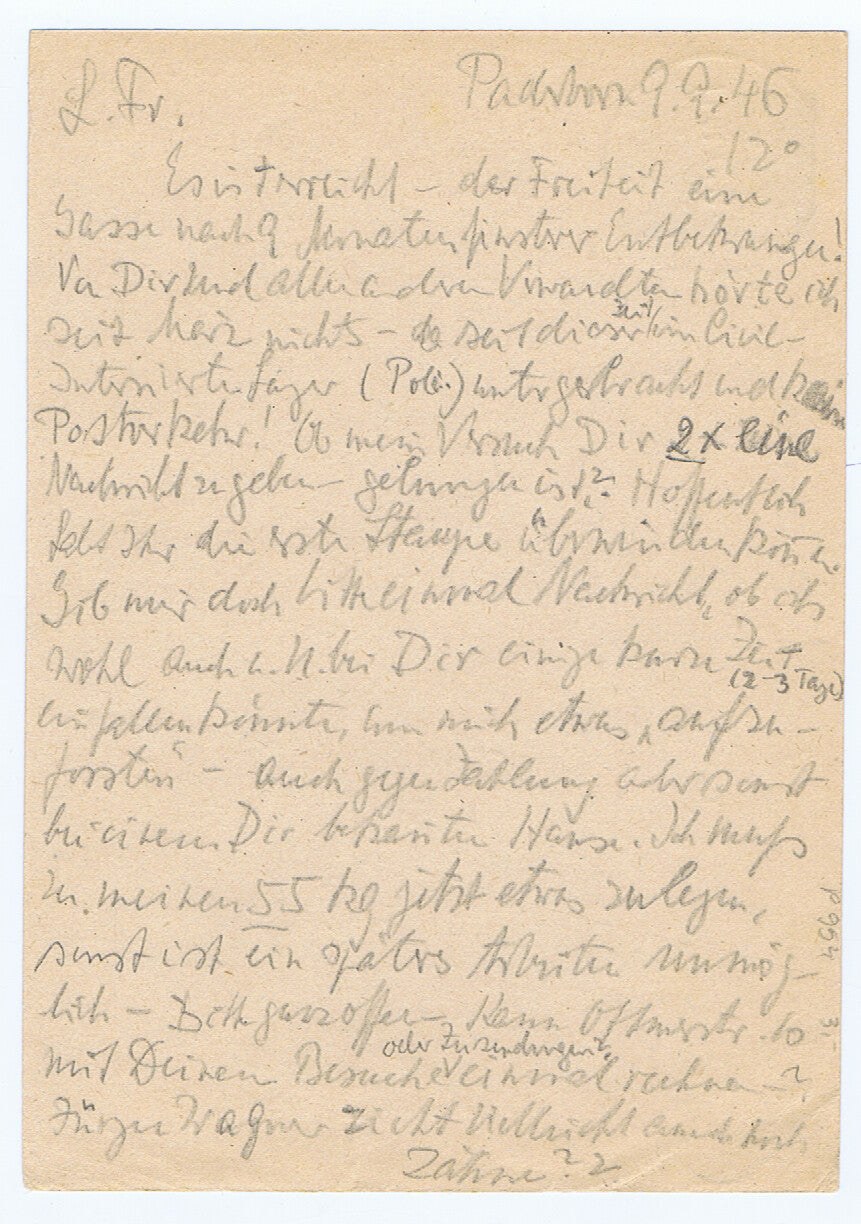 L. Fr.
Paderborn 9.9.46
12°
Es ist erreicht – der Freiheit eine
Gasse nach 9 Monaten finstrer Entbehrungen!
Von Dir und allen anderen Verwandten hörte ich
seit März nichts – da seit dieser Zeit im Civil-
Internierten Lager (Pol.) untergebracht und kein
Postverkehr! Ob mein Versuch Dir 2x eine
Nachricht zu geben – gelungen ist? Hoffentlich
habt Ihr die erste Etappe überwinden können.
Gib mir doch bitte einmal Nachricht, ob ich
wohl auch bei Dir einige kurze Zeit
(2-3 Tage)
einfallen könnte, um mich etwas „aufzu-
forsten" – auch gegen Zahlung oder sonst
bei einem Dir bekannten Hause. Ich muß
zu meinen 55 kg jetzt etwas zulegen,
sonst ist ein späteres Arbeiten unmög-
lich – Bitte ganz offen – Kann 10
mit Deinem Besuche oder Zusendungen einmal rechnen – ?
Jürgen Wagner zieht vielleicht auch noch
Zähne??
P954
3,-